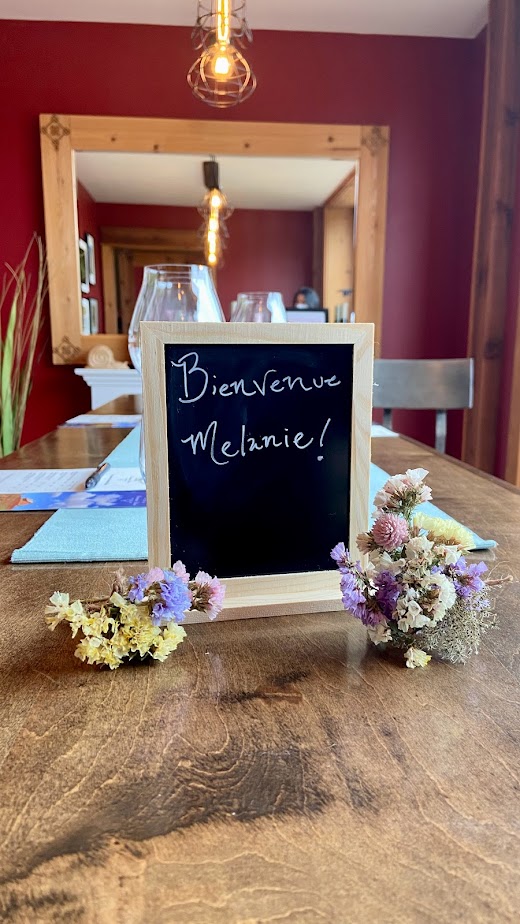 Bienvenue
Melanie!